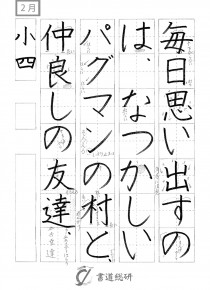 2月
毎日思い出すの
は、なつかしい
パグマンの村と、
仲良しの友達、
小四
書道総研